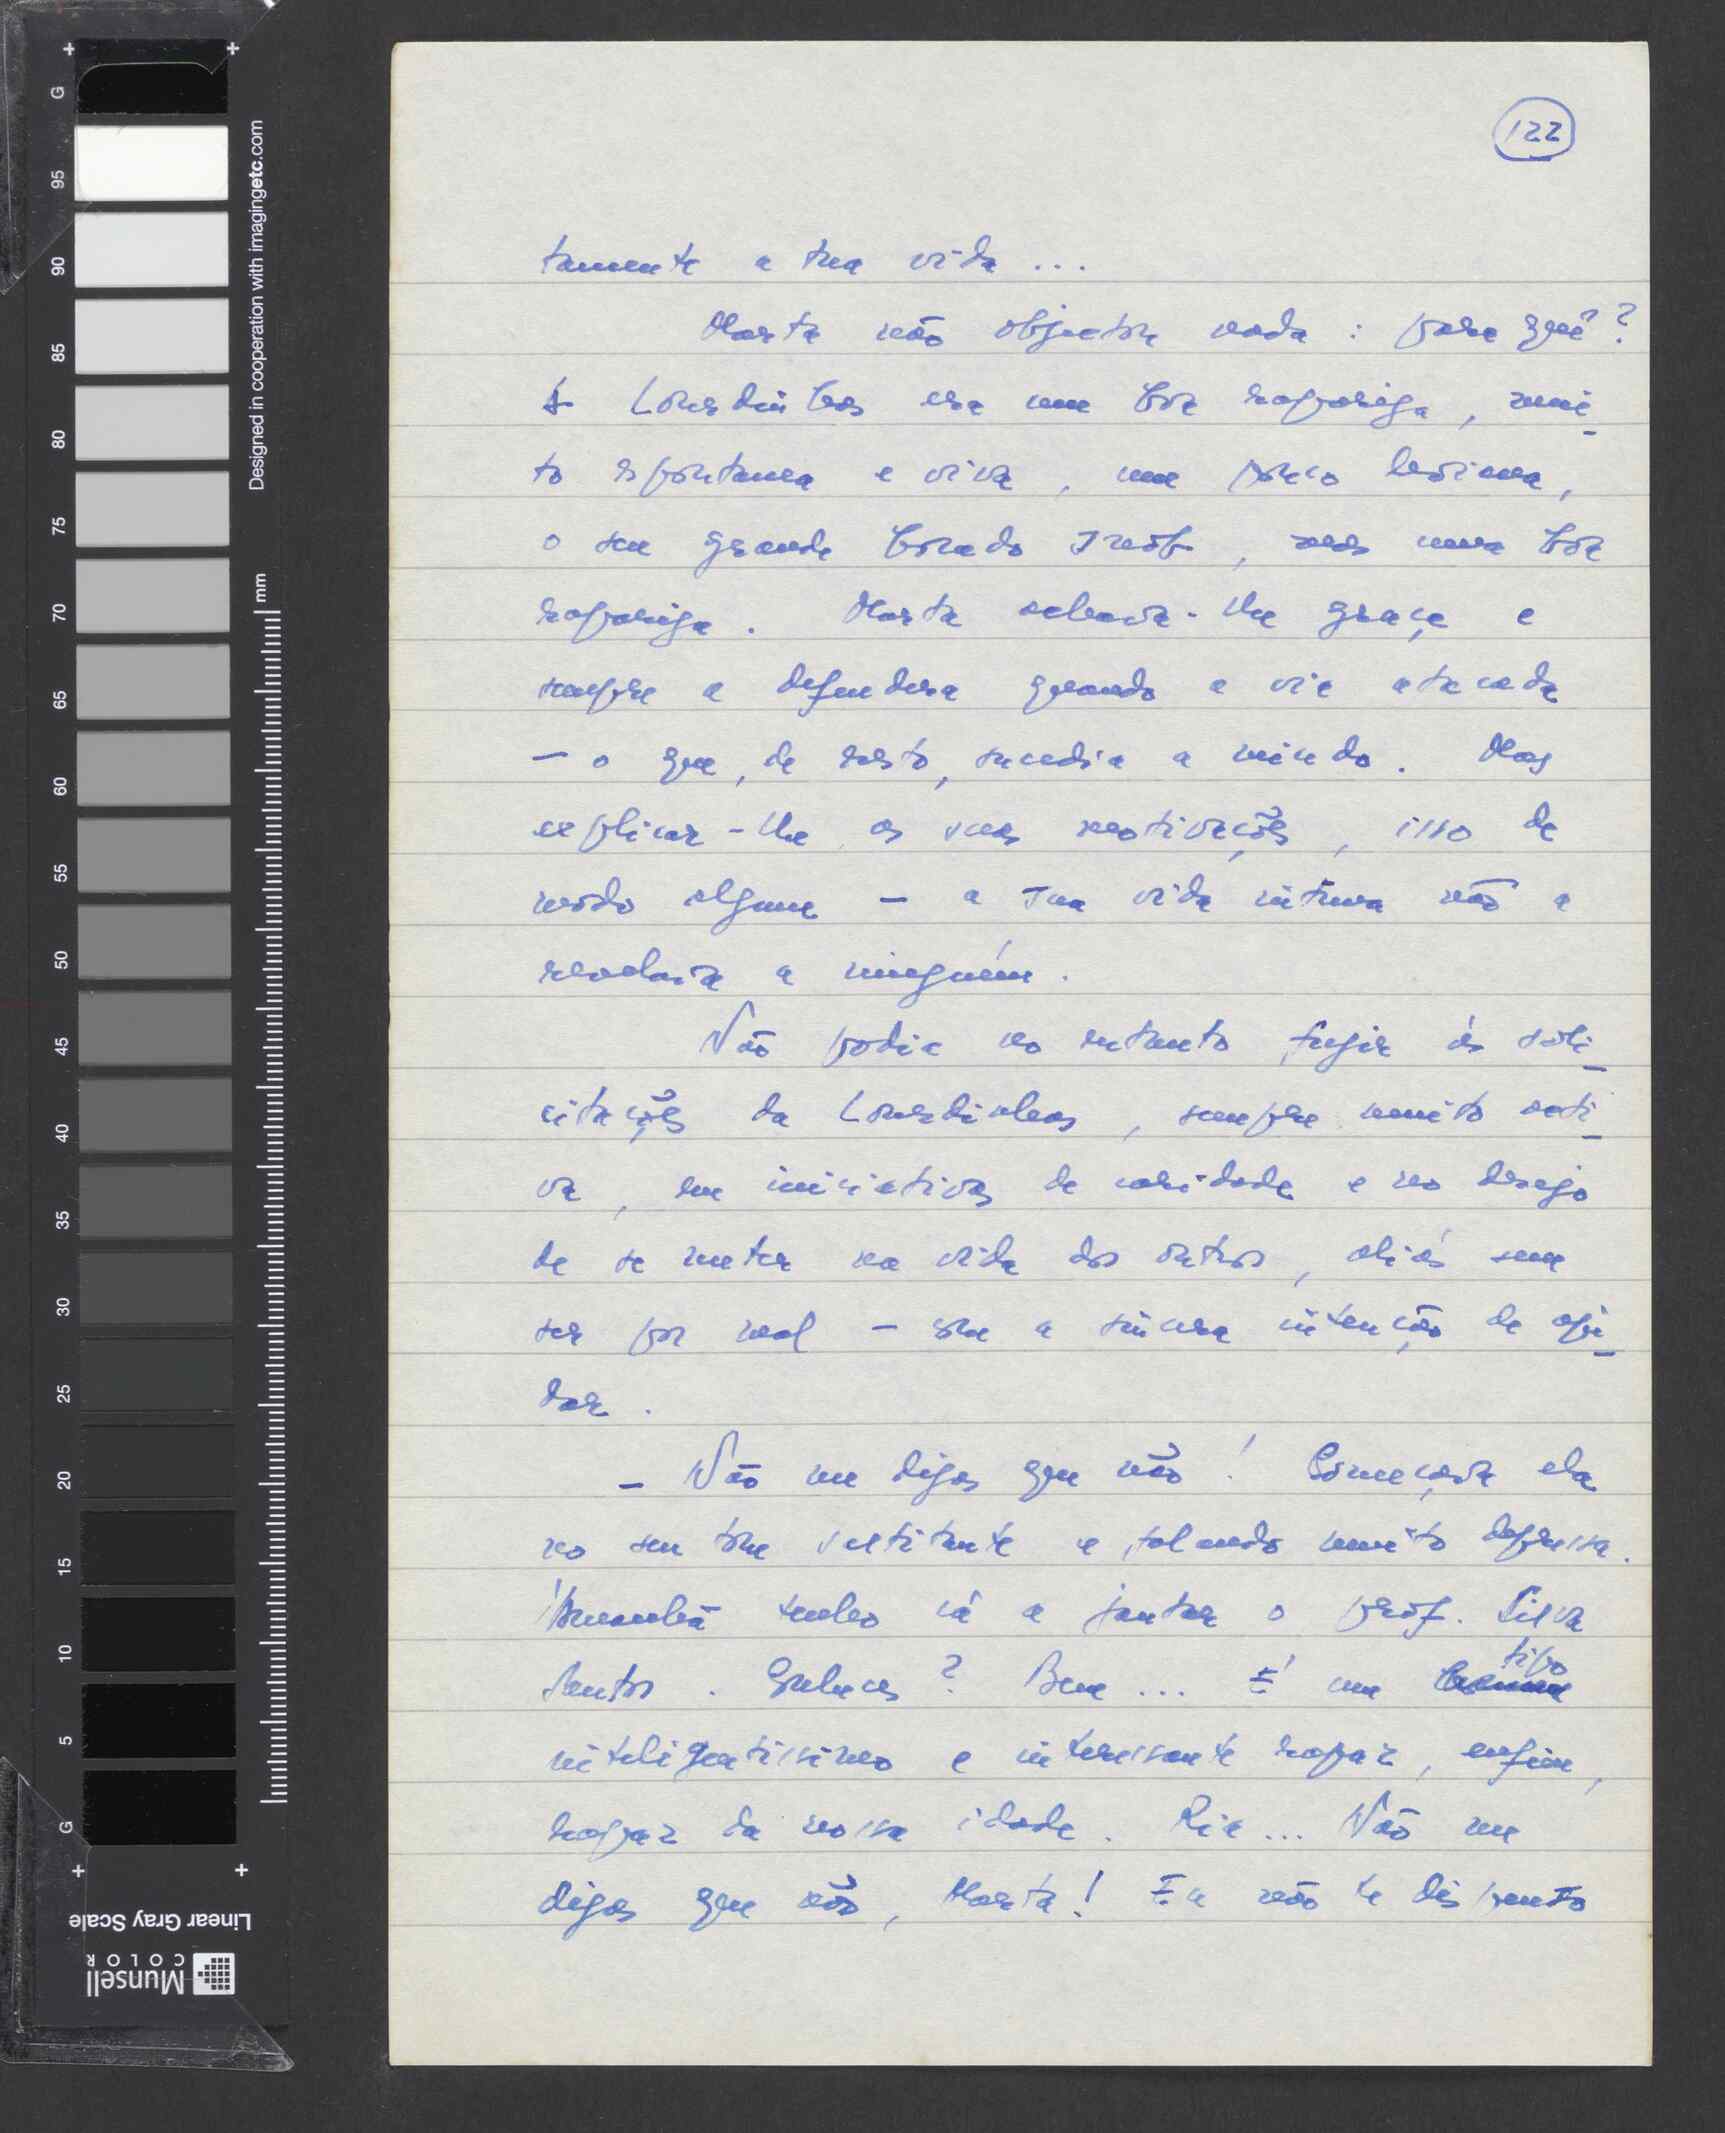 122
tamente a tua vida ...
Marta não objectou nada : para quê ?
A Lourdinhas era um boa rapariga , mui-
to espontanea e viva , um pouco leviana ,
o seu grande bocado snob , mas uma boa
rapariga . Marta achava-lhe graça e
sempre a defendera quando a via atacada
– o que , de resto , sucedia a miudo . Mas
explicar-lhe as suas motivações , isso de
modo algum – a sua vida intima não a
revelava a ninguém .
Não podia no entanto fugir às soli-
citações da Lourdinhas , sempre muito acti-
va , em iniciativas de caridade e no desejo
de se meter na vida dos outros , aliás sem
ser por mal – era a sincera intenção de aju-
dar .
– Não me digas que não ! Começava ela
no seu tom saltitante e falando muito depressa .
Amanhã tenho cá a jantar o prof. Silva
Santos . Conheces ? Bem ... É um tipo
inteligentissimo e interessante rapaz , enfim ,
rapaz da nossa idade . Ria ... Não me
digas que não , Marta ! Eu não te dispenso
Designed in cooperation with imagingetc.com
mm
G 95 90 85 80 75 70 65 60 55 50 45 40 35 30 25 20 15 10 5 G
Linear Gray Scale
Munsell
COLOR